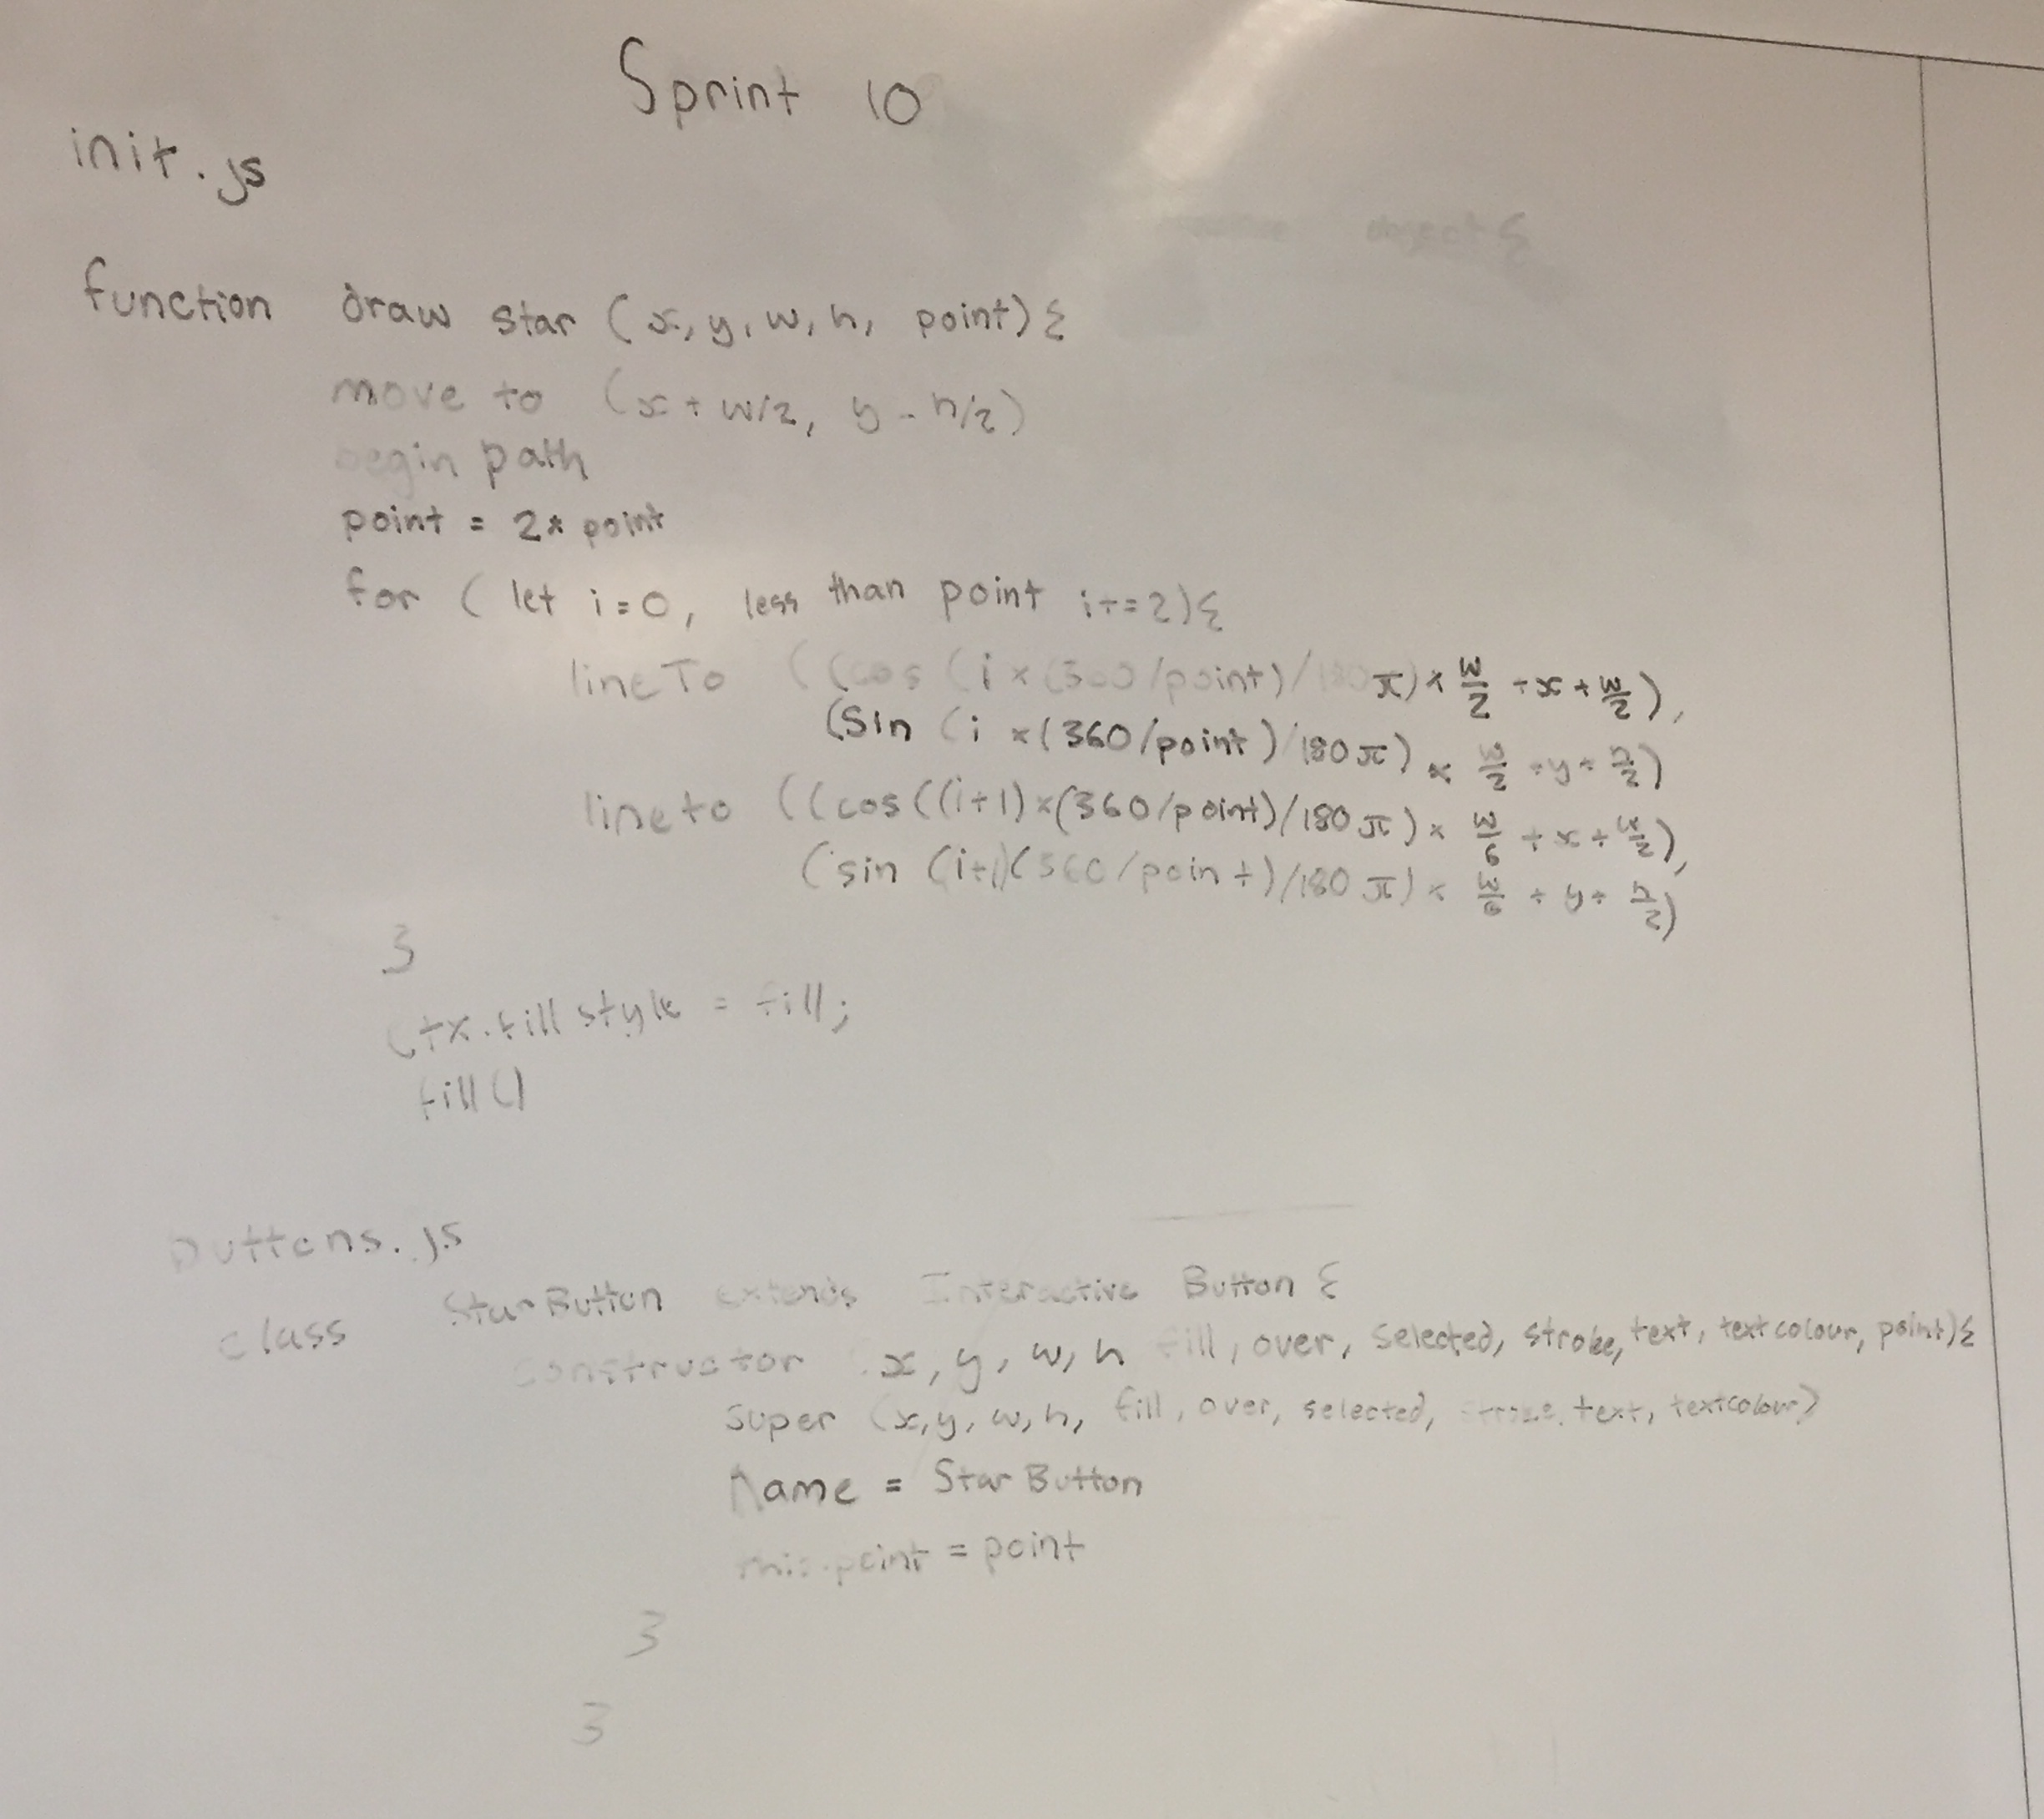 Sprint 10
init.js
object {
function draw star (x, y, w, h, point) {
move to (x + w/2, y - h/2)
begin path
point = 2* point
for ( let i=0, less than point i+=2) {
lineTo ((cos (i × (360/point)/180 π) × w/2 + x + w/2),
(Sin (i × (360/point)/180 π) × w/2 + y + h/2)
lineto ((cos((i+1) × (360/point)/180 π) × w/6 + x + w/2),
(sin (i+1)(360/point)/180 π) × w/6 + y + h/2)
}
ctx.fill style = fill;
fill()
buttons.js
class StarButton extends Interactive Button {
constructor (x, y, w, h fill, over, selected, stroke, text, text colour, point) {
super (x, y, w, h, fill, over, selected, stroke, text, textcolour)
Name = Star Button
this.point = point
}
}